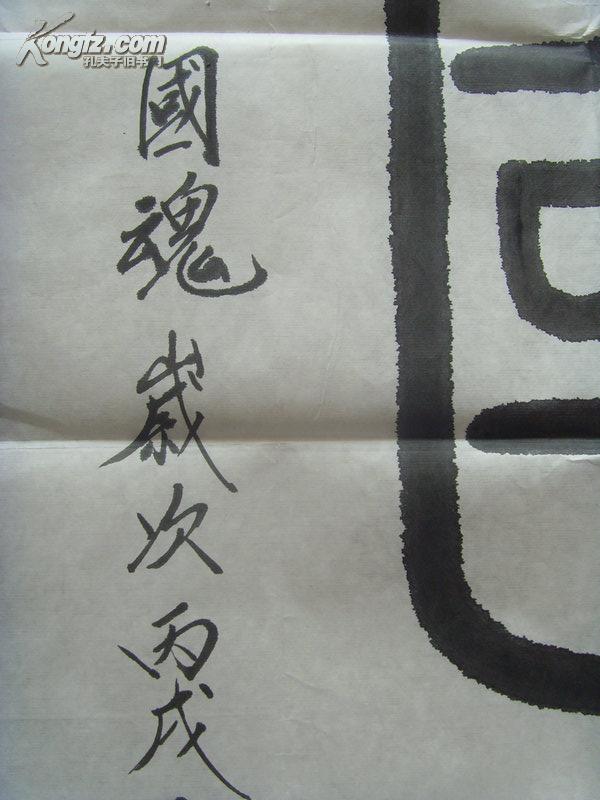 Kongfz.com
孔夫子旧书网
國魂歲次丙戌